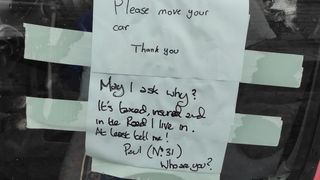 Please move your
car
Thank you
May I ask why?
It's taxed, insured and
in the Road I live in.
At least tell me!
Paul (No. 31)
Who are you?